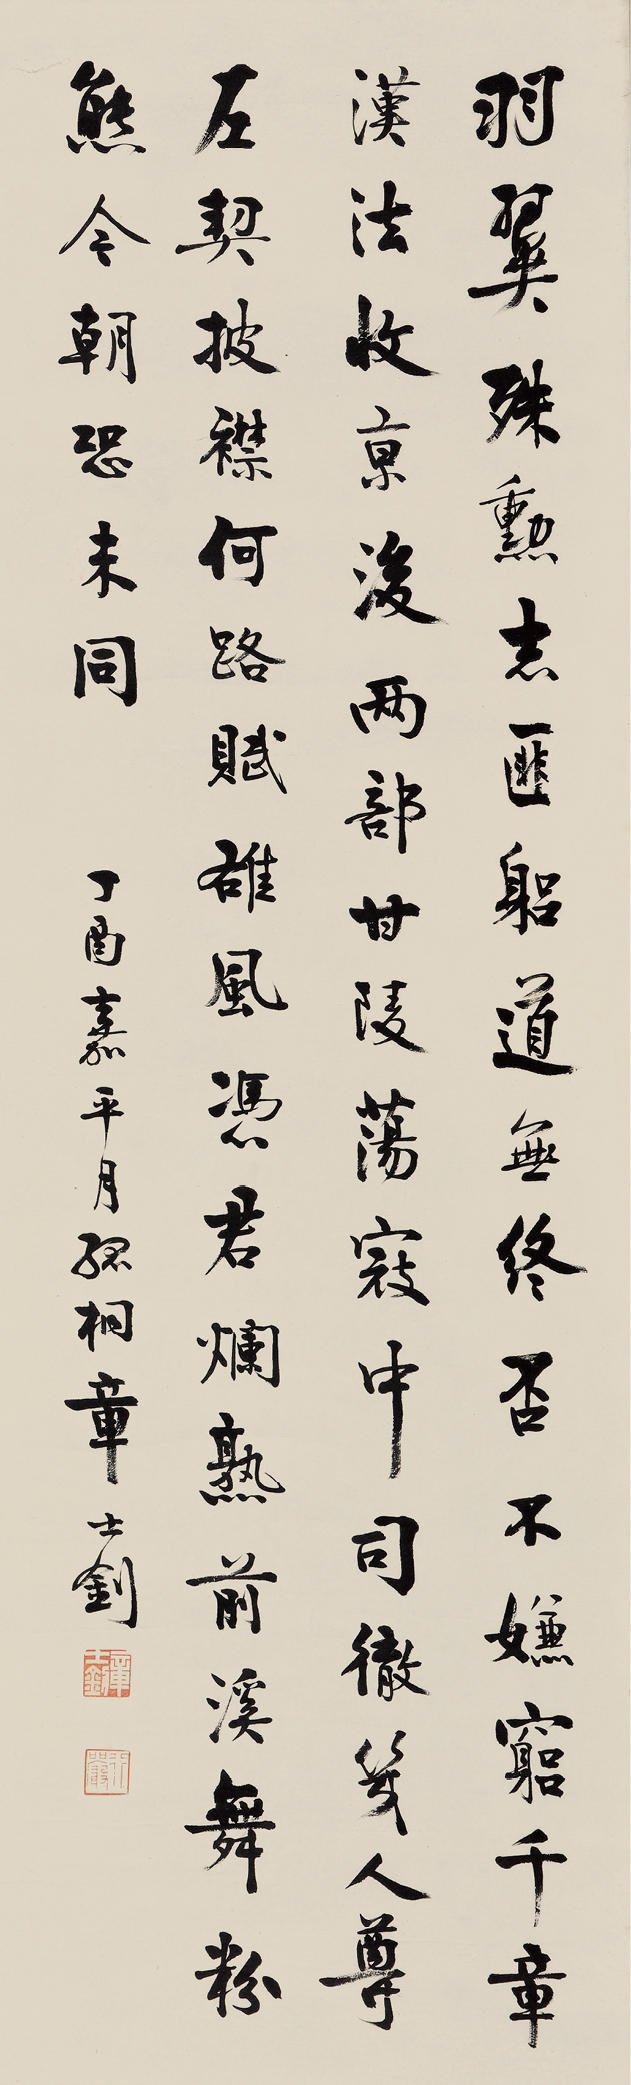 羽翼殊勳志匪躬道無終否不嫌窮千章
漢法收京後两部甘陵蕩寇中司徹幾人尊
左契披襟何路賦雄風憑君爛熟前溪舞粉
熊今朝恐未同
丁酉嘉平月孤桐章士釗
章士釗
行嚴